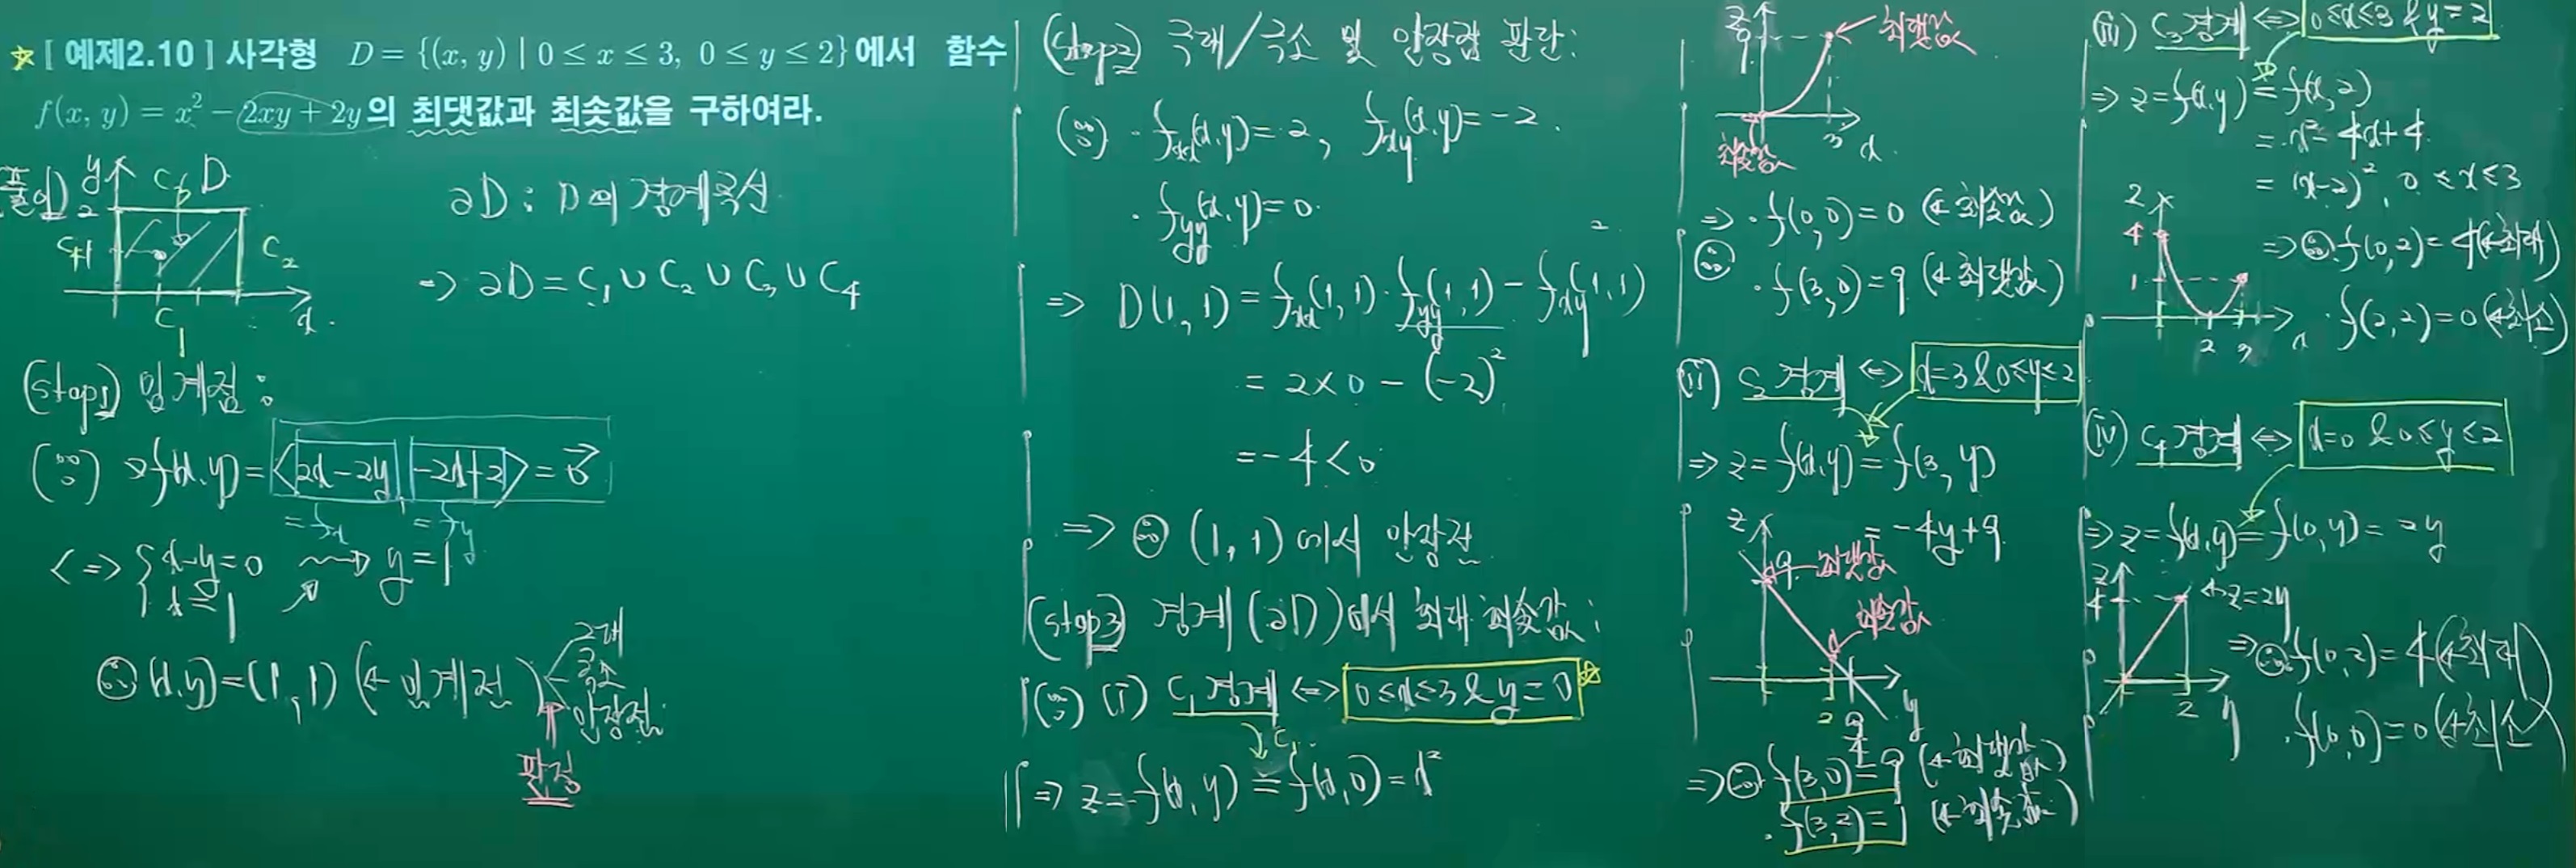 ☆[ 예제2.10 ] 사각형 D = {(x, y) | 0 ≤ x ≤ 3, 0 ≤ y ≤ 2}에서 함수
f(x, y) = x² − 2xy + 2y의 최댓값과 최솟값을 구하여라.
풀이)
y
2
C₃
D
C₄
1
C₂
x
C₁
∂D : D의 경계곡선
⇒ ∂D = C₁ ∪ C₂ ∪ C₃ ∪ C₄
(step1) 임계점 :
(∵) ∇f(x,y) = <2x−2y, −2x+2> = 0⃗
= fx = fy
<=> { x−y=0 ⇝ y=1
x=1
∴ (x,y)=(1,1) (← 임계점)
극대
극소
안장점
판정
(step2) 극대/극소 및 안장점 판단:
(∵) · fxx(x,y)=2, fxy(x,y)=−2.
· fyy(x,y)=0.
⇒ D(1,1) = fxx(1,1)·fyy(1,1) − fxy²(1,1)
= 2×0 − (−2)²
= −4 < 0
⇒ ∴ (1,1)에서 안장점
(step3) 경계(∂D)에서 최대 최솟값:
(∵) (i) C₁경계 <=> 0≤x≤3 & y=0 ☆
C₁
⇒ z=f(x,y) = f(x,0) = x²
z
9
최댓값
최솟값
3
x
⇒ · f(0,0)=0 (← 최솟값)
∴ · f(3,0)=9 (← 최댓값)
(ii) C₂경계 <=> x=3 & 0≤y≤2
⇒ z=f(x,y) = f(3,y)
= −4y+9
z
9
최댓값
최솟값
1
2
9/4
y
⇒ ∴ · f(3,0)=9 (← 최댓값)
· f(3,2)=1 (← 최솟값)
(iii) C₃경계 <=> 0≤x≤3 & y=2
⇒ z=f(x,y) = f(x,2)
= x²−4x+4
= (x−2)², 0≤x≤3
z
4
1
2
3
x
⇒ ∴ · f(0,2)=4 (← 최대)
· f(2,2)=0 (← 최소)
(iv) C₄경계 <=> x=0 & 0≤y≤2
⇒ z=f(x,y) = f(0,y) = 2y
z
4
← z=2y
2
y
⇒ ∴ · f(0,2)=4 (← 최대)
· f(0,0)=0 (← 최소)